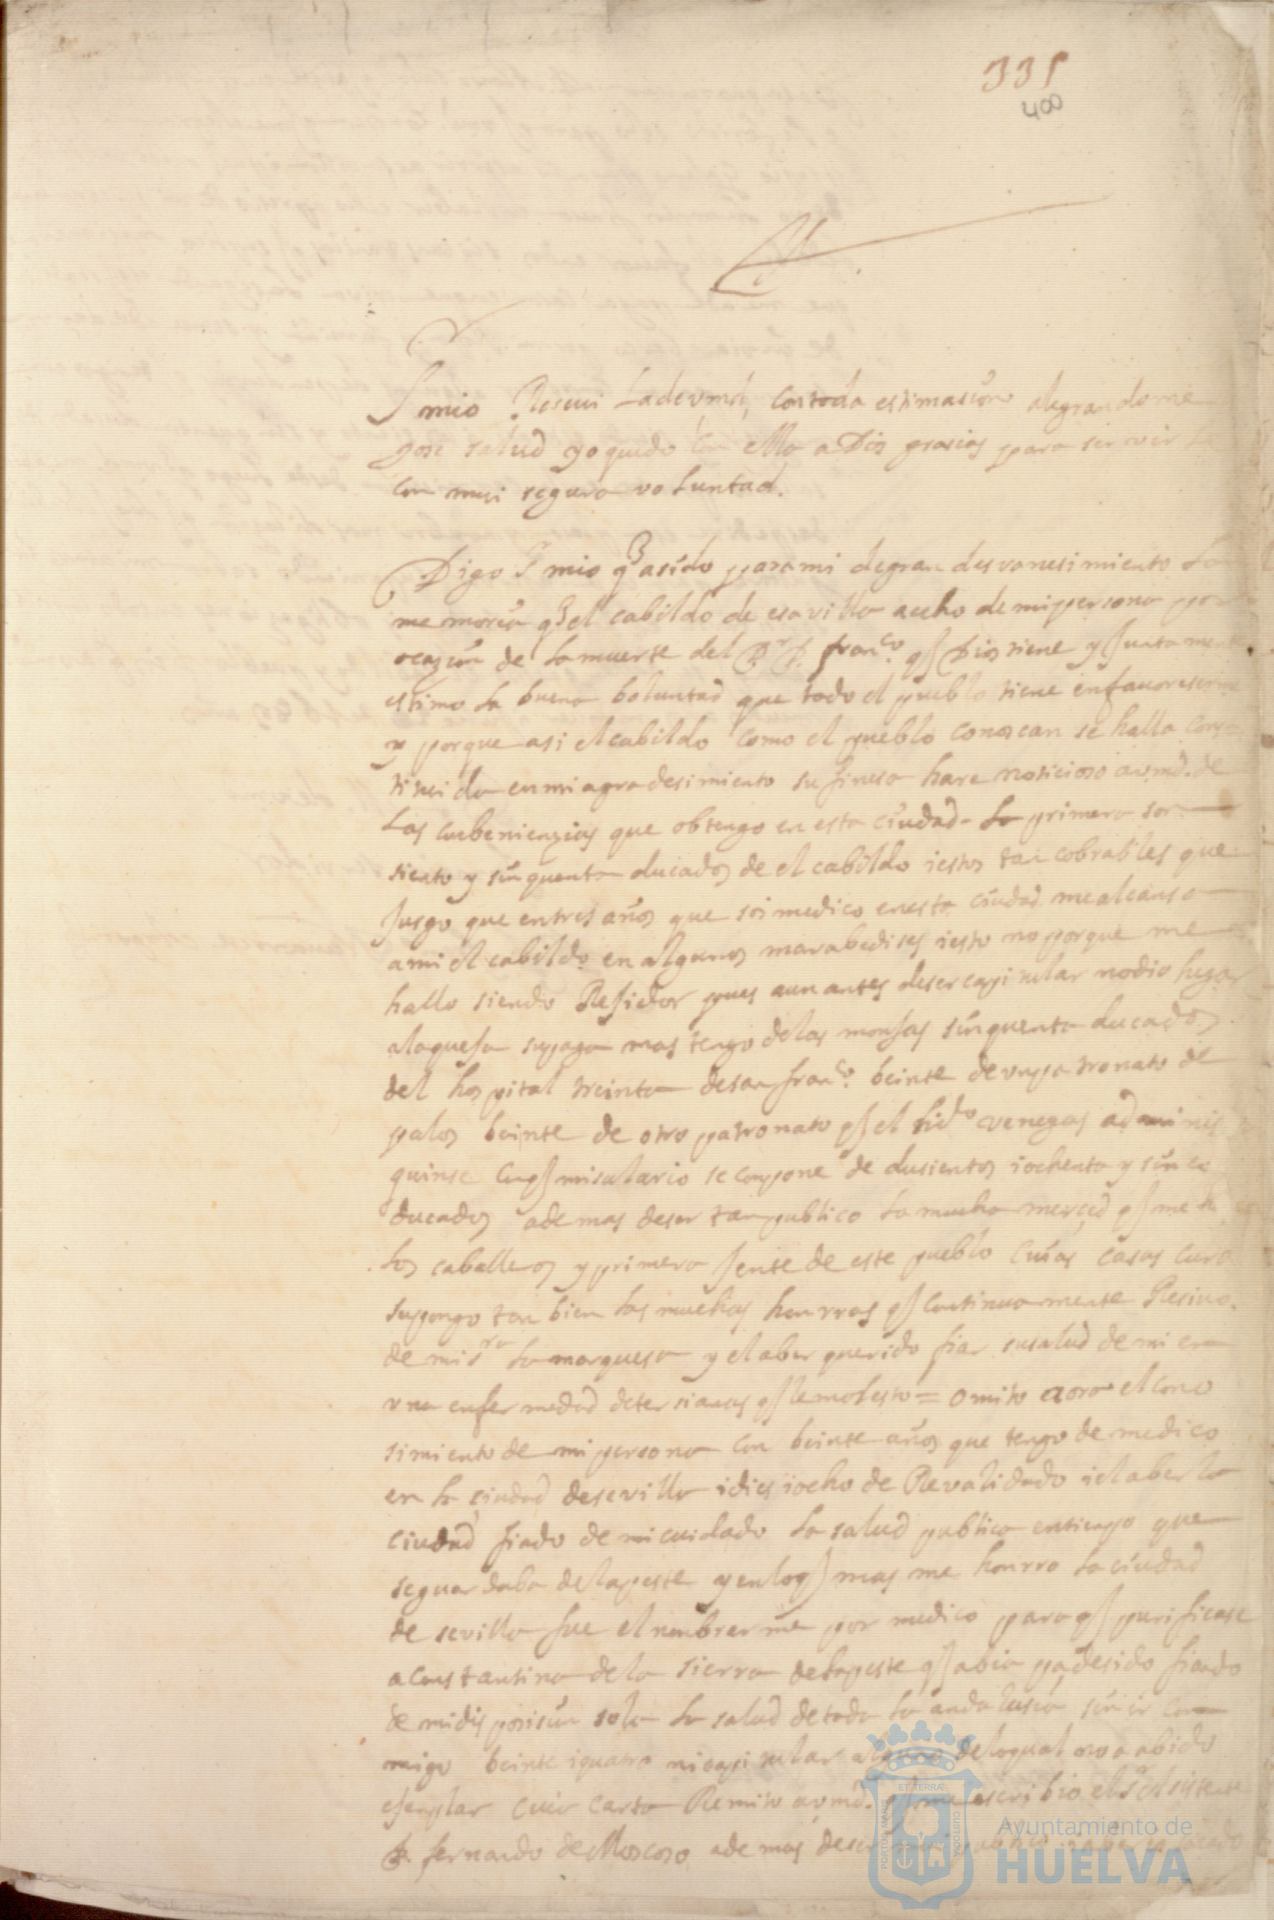 331
400
Sr mio Reseui La de vmd, con toda estimasion alegrandome
gose salud yo quedo Con ella a Dios grasias para servir
Con mui segura voluntad.
Digo Sr mio q asido para mi de gran desvanesimiento La
memoria q el cabildo de esa villa aecho de mi persona por
ocasion de la muerte del Dr D. franco. q Dios tiene y Juntamente
estimo la buena boluntad que todo el pueblo tiene en fauoreserme
y porque asi el cabildo como el pueblo conoscan se halla
en mi agradesimiento su finesa hare notisioso avmd. de
Las conbenienzias que obtengo en esta ciudad. La primera son
siento y sinquenta ducados de el cabildo iestos tan cobrables que
Jusgo que en tres años que soi medico en esta ciudad me alcansa
ami el cabildo en algunos marabedises iesto no porque me
hallo siendo Rejidor pues aun antes de ser capitular no dio lugar
alaquesa su paga mas tengo de las monjas sinquenta ducados
del hospital treinta de san franco. beinte de un patronato de
palos beinte de otro patronato q el Lido venegas
quinse Conq mi salario se compone de dusientos iochenta y sinco
ducados ademas de ser tan publico la mucha merced q me
los caballeros y primera Jente de este pueblo cuias casas curo
supongo tan bien las muchas honrras q continuamente Resiuo.
de mi sra la marquesa y el aber querido fiar su salud de mi en
una enfermedad de tersianas q le molesto = omito aora el cono
simiento de mi persona con beinte años que tengo de medico
en la ciudad de sevilla idies iocho de Revalidado i el aber la
ciudad fiado de mi cuidado la salud publica en tiempo que
se guardaba de la peste y en loq mas me honrro la ciudad
de sevilla fue el nonbrarme por medico para q purificase
a Constantina de la sierra de la peste q abia padesido fiando
de mi disposision sola la salud de toda la andalusia sin ir con
migo beinte iquatro ni capitular alguno de loqual no a abido
ejenplar cuia carta Remito avmd. q me escribio el Sr Asistente
D. fernando de Moscoso ademas de ser
Ayuntamiento de
HUELVA